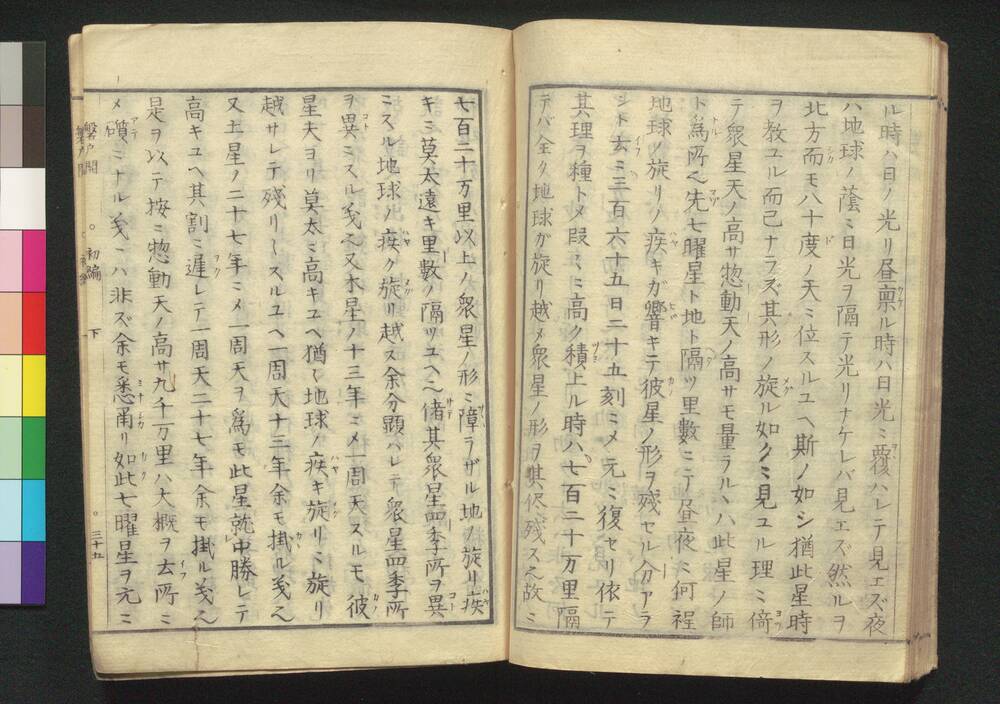 ル時ハ日ノ光リ昼稟ル時ハ日光ミ覆ハレテ見エズ夜
ハ地球ノ蔭ミ日光ヲ隔テ光リナケレバ見エズ然ルヲ
北方而モ八十度ノ天ミ位スルユヘ斯ノ如シ猶此星時
ヲ教ユル而已ナラズ其形ノ旋ル如クミ見ユル理ミ倚
テ衆星天ノ高サ惣動天ノ高サモ量ラルヽハ此星ノ師
ト為所也先七曜星ト地ト隔ツ里數ミテ昼夜ミ何程
地球ノ旋リノ疾キガ響キテ彼星ノ形ヲ残セル分アラ
シト去ミ三百六十五日二十五刻ミメ元ミ復セリ依テ
其理ヲ種トメ段ミミ高ク積上ル時ハ七百二十万里隔
デバ全ク地球ガ旋リ越メ衆星ノ形ヲ其侭残ス也故ミ
七百二十万里以上ノ衆星ノ形ミ障ラザル地ノ旋リ疾
キミ莫太遠キ里數ノ隔ツユヘ也偖其衆星四季所ヲ異
ミスル地球ノ疾ク旋リ越ス余分顕ハレテ衆星四季所
ヲ異ミスル義也又木星ノ十三年ミメ一周天スルモ彼
星夫ヨリ莫太ミ高キユヘ猶〱地球ノ疾キ旋リミ旋リ
越サレテ残リ〱スルユヘ一周天十三年余モ掛ル義也
又土星ノ二十七年ミメ一周天ヲ為モ此星就中勝レテ
高キユヘ其割ミ遅レテ一周天二十七年余モ掛ル義也
是ヲ以テ按ミ惣動天ノ高サ九千万里ハ大概ヲ去所ミ
メ礩ミナル義ミハ非ズ余モ悉甬リ如此七曜星ヲ元ミ
磐戸開
初編
下
三十五